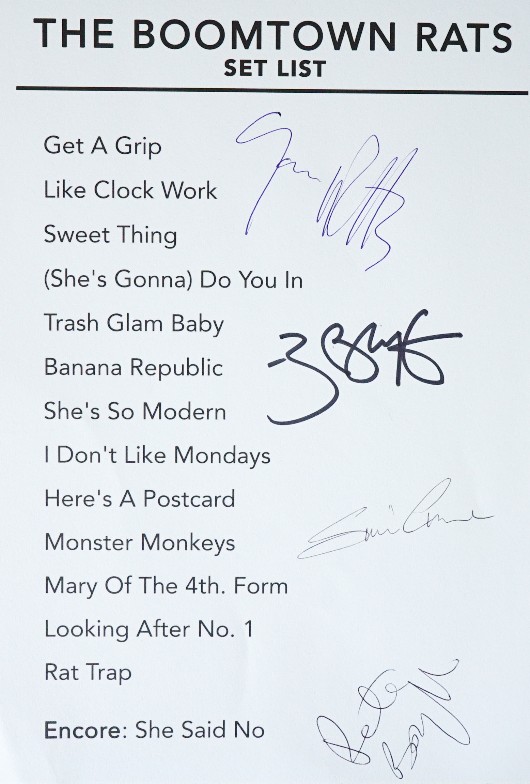 THE BOOMTOWN RATS
SET LIST
Get A Grip
Like Clock Work
Sweet Thing
(She's Gonna) Do You In
Trash Glam Baby
Banana Republic
She's So Modern
I Don't Like Mondays
Here's A Postcard
Monster Monkeys
Mary Of The 4th. Form
Looking After No. 1
Rat Trap
Encore: She Said No